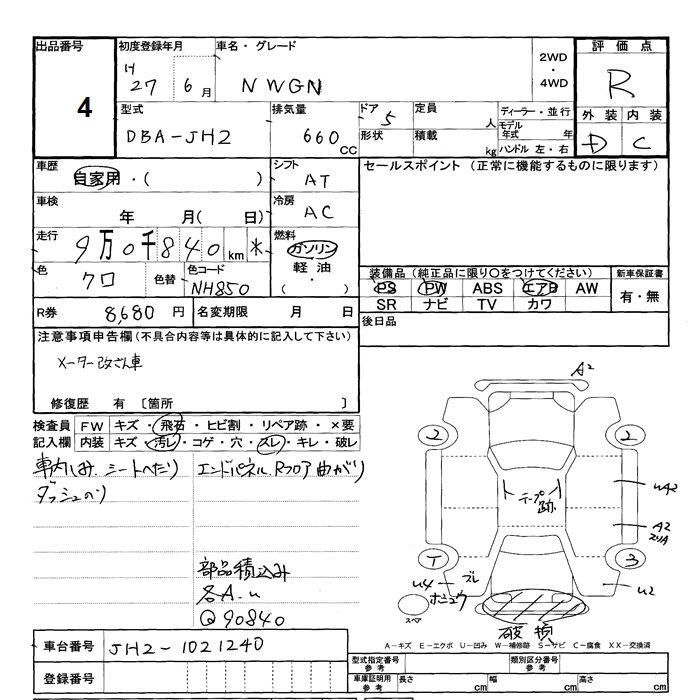 出品番号
4
初度登録年月
H
27 6月
車名・グレード
N WGN
2WD
・
4WD
評価点
R
外装 内装
D C
型式
DBA-JH2
排気量
660
CC
ドア
5
形状
定員
人
積載
kg
ディーラー・並行
モデル
年式 年
ハンドル 左・右
車歴
自家用・( )
シフト
AT
車検
年 月( 日)
冷房
AC
走行
9万0千840km *
燃料
ガソリン
軽油
( )
色
クロ
色替
色コード
NH850
R券
8,680円
名変期限 月 日
セールスポイント(正常に機能するものに限ります)
装備品(純正品に限り○をつけてください)
PS PW ABS エアB AW
SR ナビ TV カワ
新車保証書
有・無
後日品
注意事項申告欄(不具合内容等は具体的に記入して下さい)
メーター改ざん車
修復歴 有 〔箇所 〕
検査員
記入欄
FW キズ・飛石・ヒビ割・リペア跡・×要
内装 キズ・汚レ・コゲ・穴・スレ・キレ・破レ
車内しみ シートへたり
ダッシュのり
エンドパネル、Rフロア曲がり
部品積込み
各A.u
Q90840
A2
2 2
テープ
跡
uA2
A2
スリA
T 3
u4 ブレ
u2
スペア
破損
A-キズ E-エクボ U-凹み W-補修跡 S-サビ C-腐食 XX-交換済
車台番号
JH2-1021240
登録番号
型式指定番号
参考
類別区分番号
参考
車庫証明用
参考
長さ cm 幅 cm 高さ cm